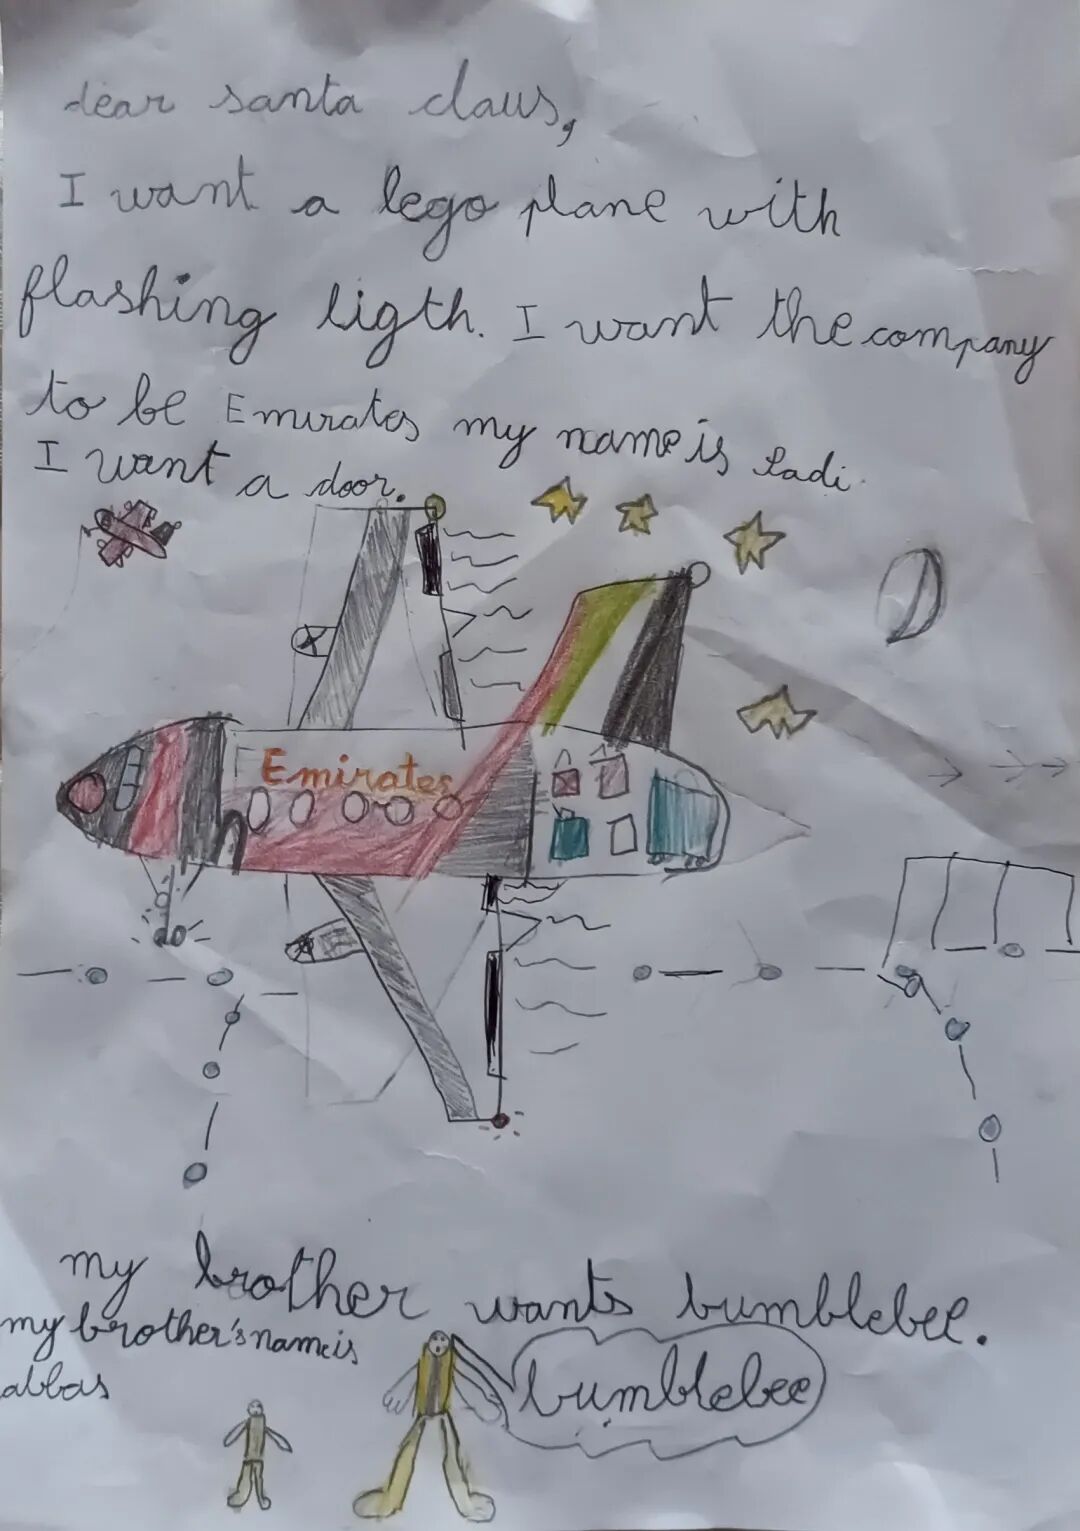 dear santa claus,
I want a lego plane with
flashing ligth. I want the company
to be Emirates my name is Ladi.
I want a door.
Emirates
my brother wants bumblebee.
my brother's name is
abbas
bumblebee